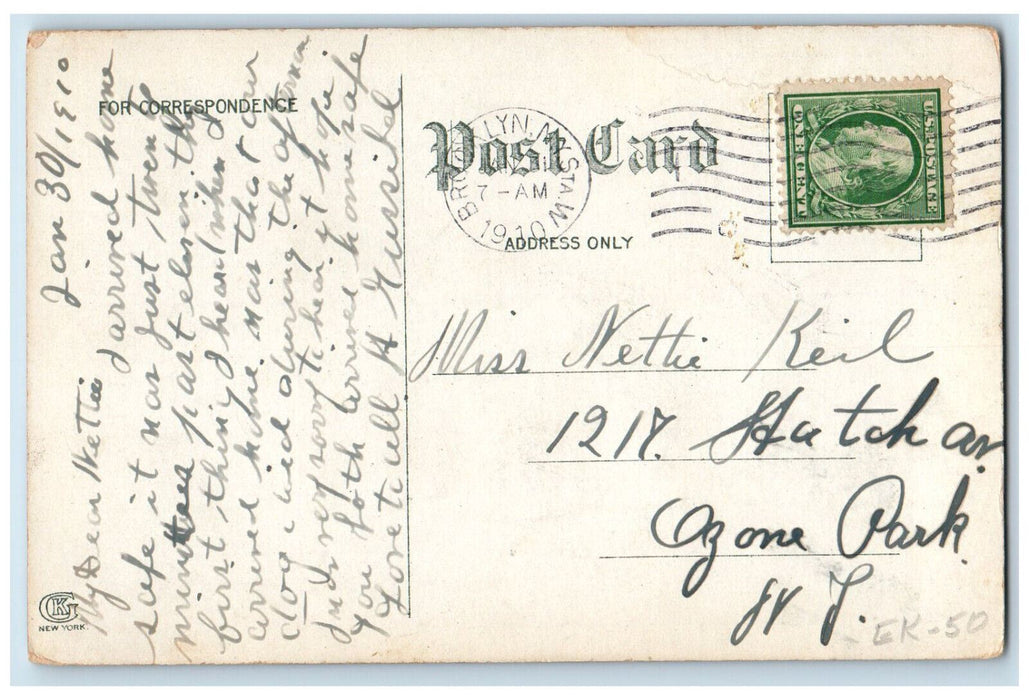 Jan 30/1910
My Dear Nettie I arrived home
safe it was just twenty
minutes past eleven. the
first thing I heard when I
arrived home was that our
dog died during the afternoon
I am very sorry to hear it hope
you both arrived home safe
Love to all
FOR CORRESPONDENCE
Post Card
BROOKLYN, N.Y. STA. W
7-AM
1910
U.S. POSTAGE
ADDRESS ONLY
Miss Nettie Keil
1217. Hatch av.
Ozone Park
N Y.
CKG
NEW YORK.
EK-50